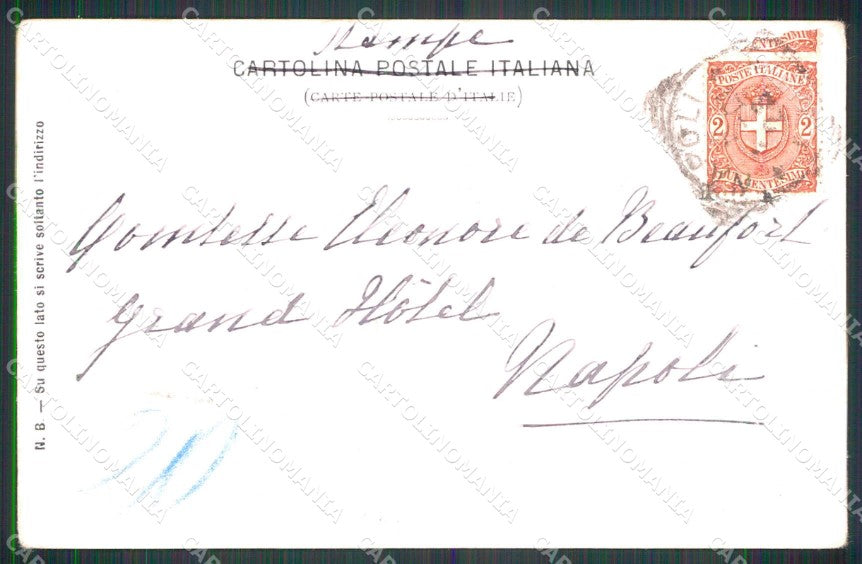 Stampe
CARTOLINA POSTALE ITALIANA
(CARTE POSTALE D'ITALIE)
POSTE ITALIANE
2 2
DUE CENTESIMI
N. B. — Su questo lato si scrive soltanto l'indirizzo
Comtesse Eleonore de Beaufort
Grand Hôtel
Napoli
CARTOLINOMANIA